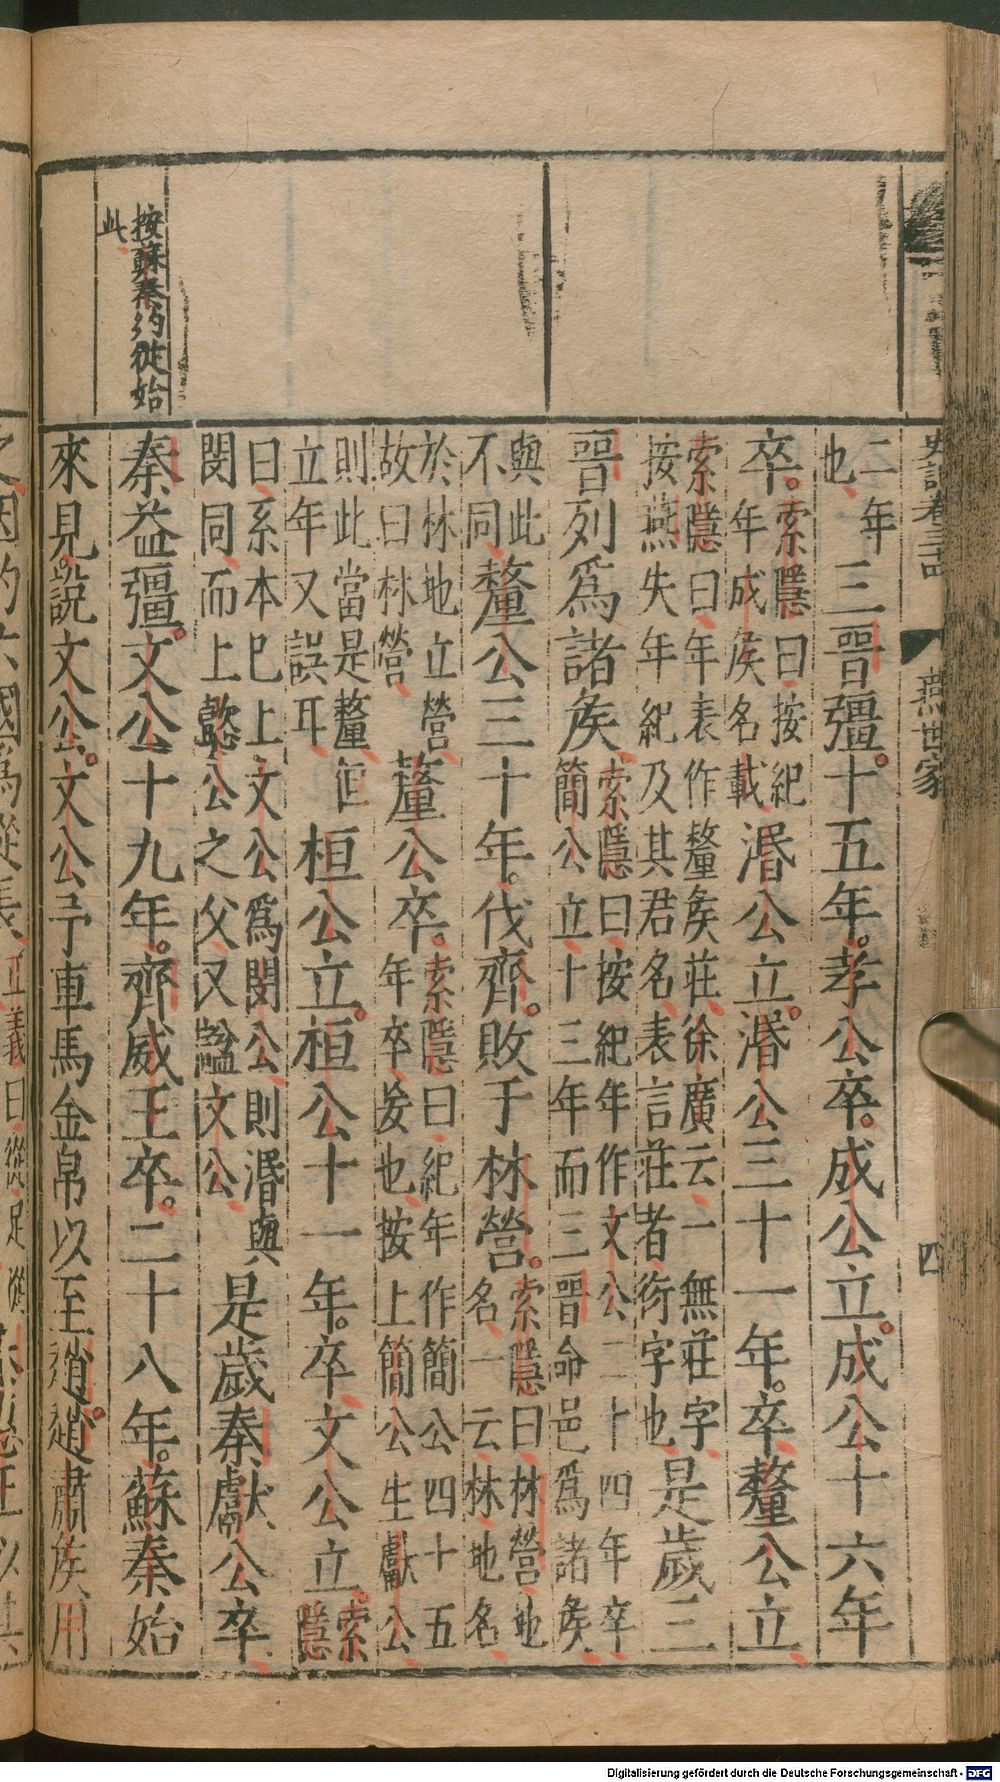 史記卷三十四 燕世家 四
二年
也
三晉彊十五年孝公卒成公立成公十六年
卒
索隱曰按紀
年成侯名載
湣公立湣公三十一年卒釐公立
索隱曰年表作釐侯莊徐廣云一無莊字
按燕失年紀及其君名表言莊者衍字也
是歲三
晉列爲諸侯
索隱曰按紀年作文公二十四年卒
簡公立十三年而三晉命邑爲諸侯
與此
不同
釐公三十年伐齊敗于林營
索隱曰林營地
名一云林地名
於林地立營
故曰林營
釐公卒
索隱曰紀年作簡公四十五
年卒妄也按上簡公生獻公
則此當是釐但
立年又誤耳
桓公立桓公十一年卒文公立
索
隱
曰系本已上文公爲閔公則湣與
閔同而上懿公之父又諡文公
是歲秦獻公卒
秦益彊文公十九年齊威王卒二十八年蘇秦始
來見說文公文公予車馬金帛以至趙趙肅侯用
按蘇秦約從始
此
因約六國爲從長
正義曰從足從
Digitalisierung gefördert durch die Deutsche Forschungsgemeinschaft - DFG